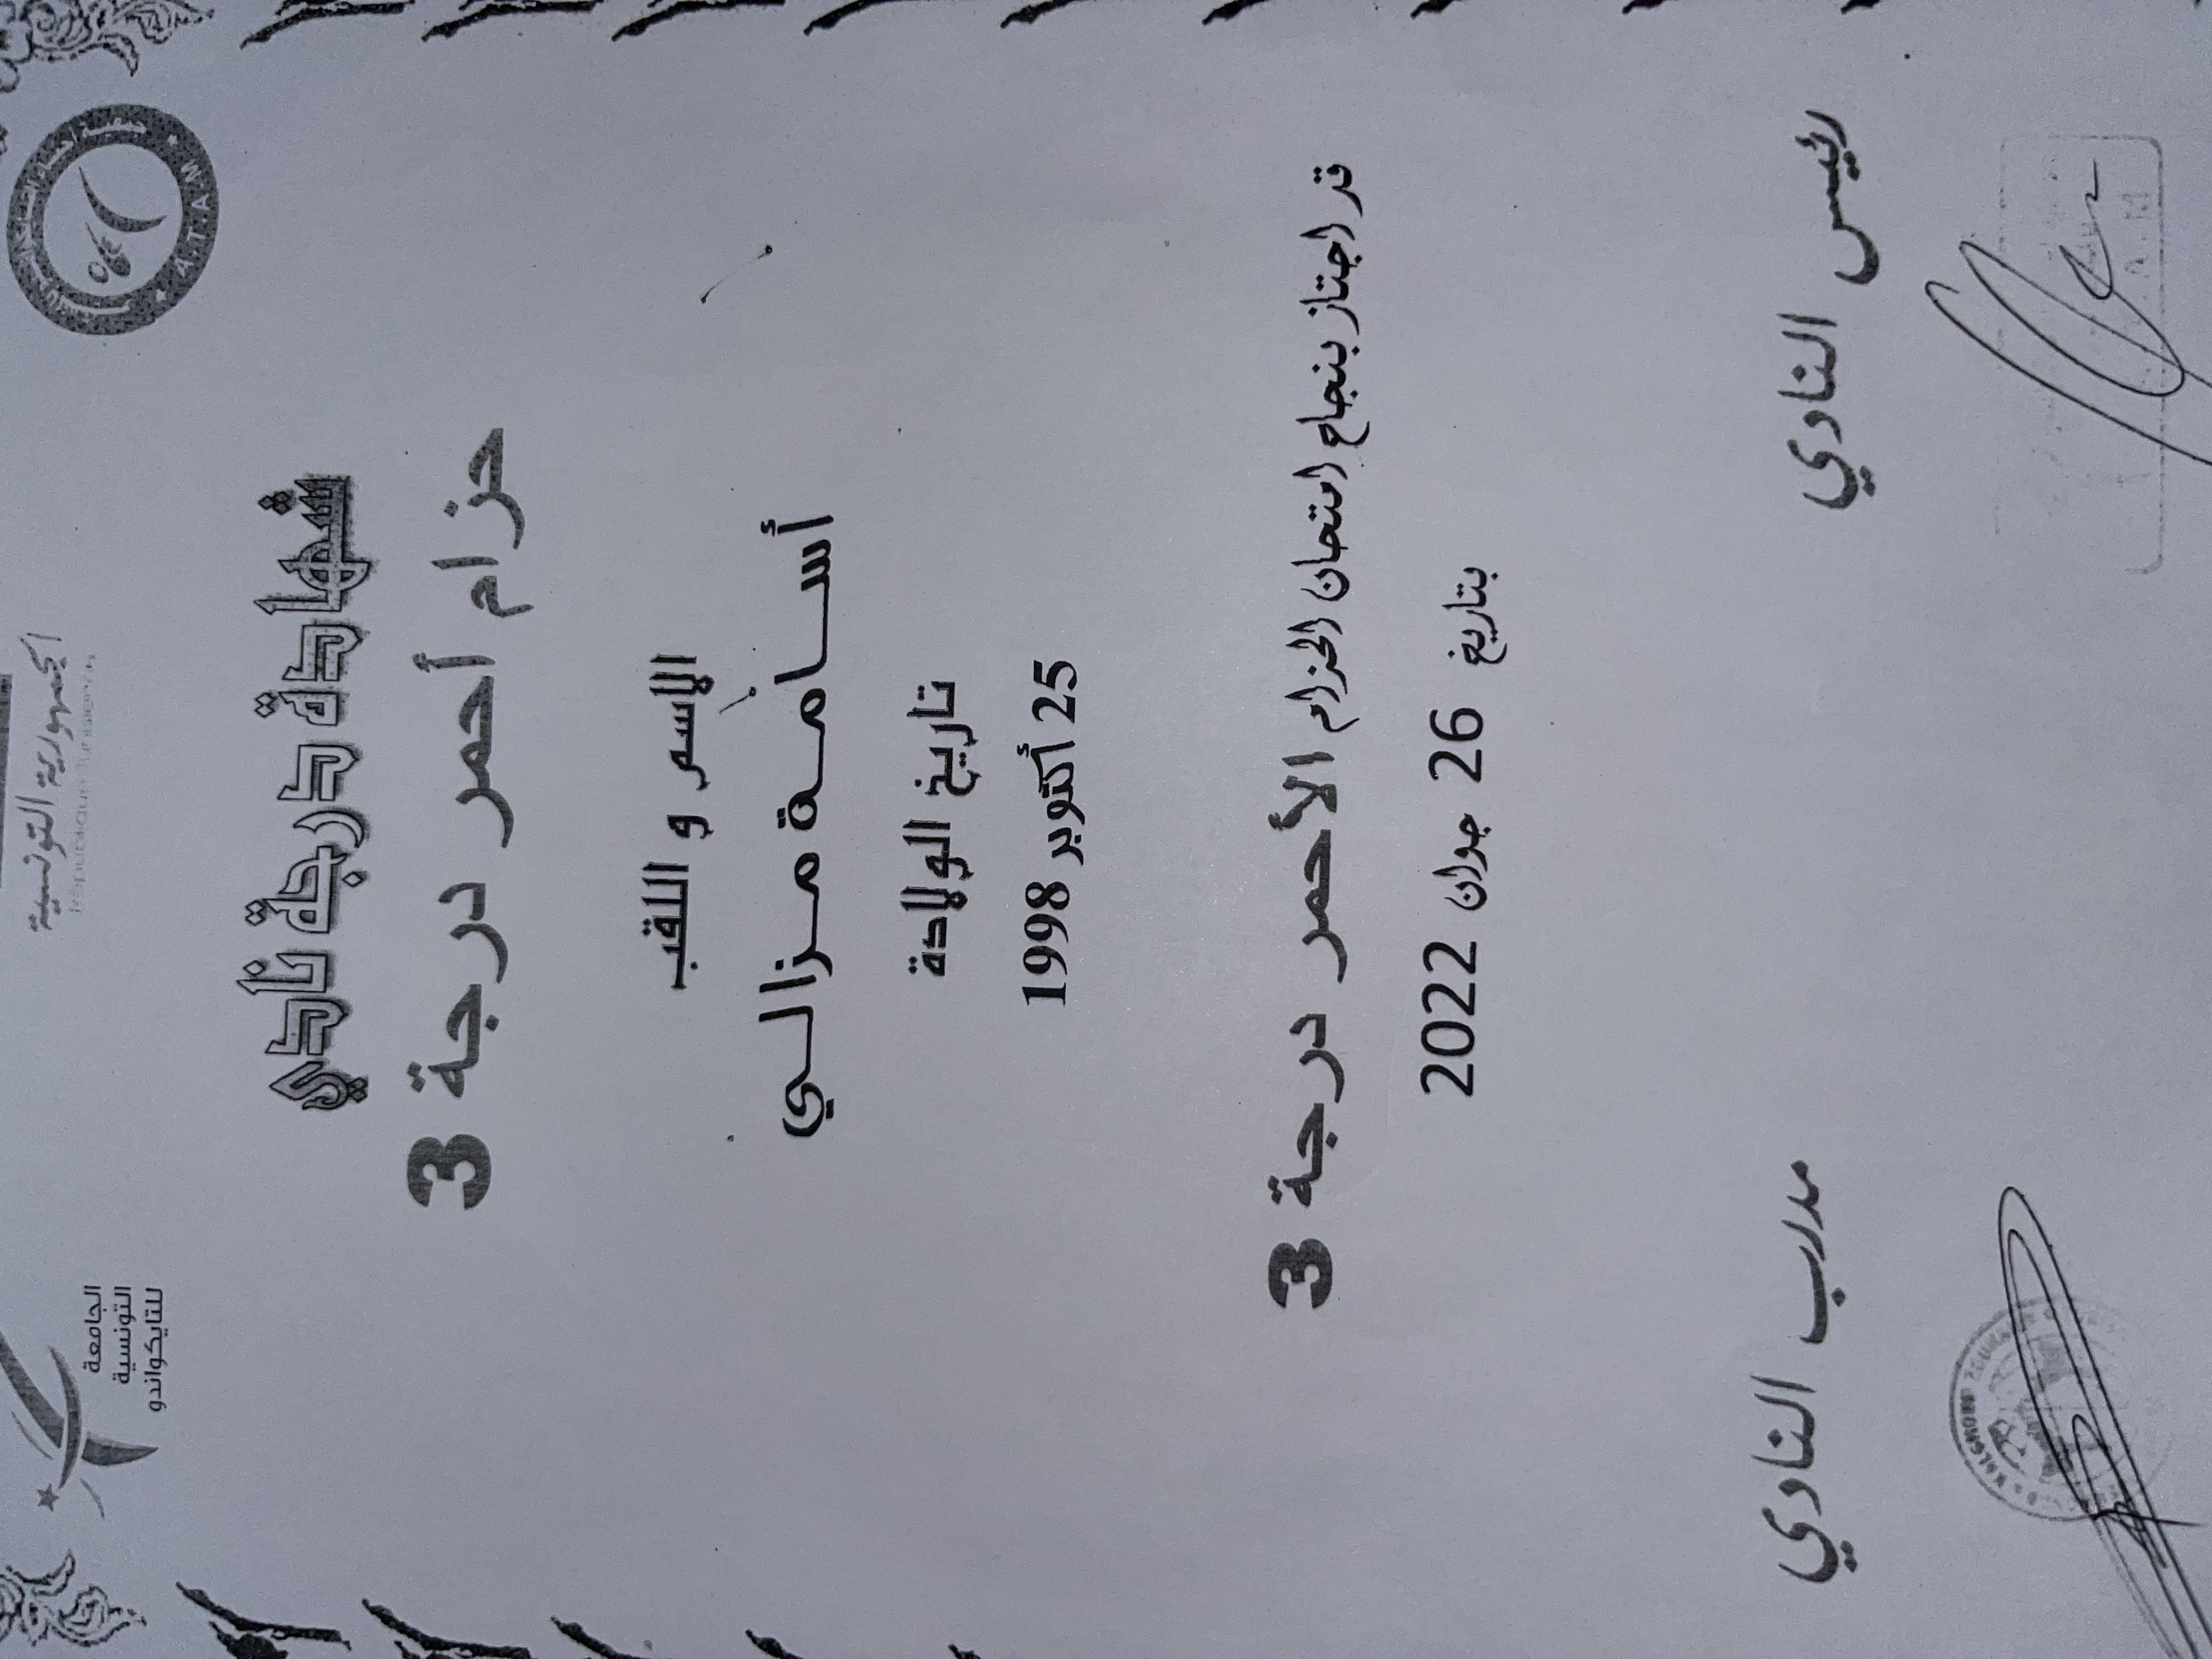 الجمهورية التونسية
الجامعة
التونسية
للتايكواندو
A.T.A.M
شهادة درجة نادي
حزام أحمر درجة 3
الإسم و اللقب
أسامة مزالي
تاريخ الولادة
25 أكتوبر 1998
قد اجتاز بنجاح امتحان الحزام الأحمر درجة 3
بتاريخ 26 جوان 2022
رئيس النادي
مدرب النادي